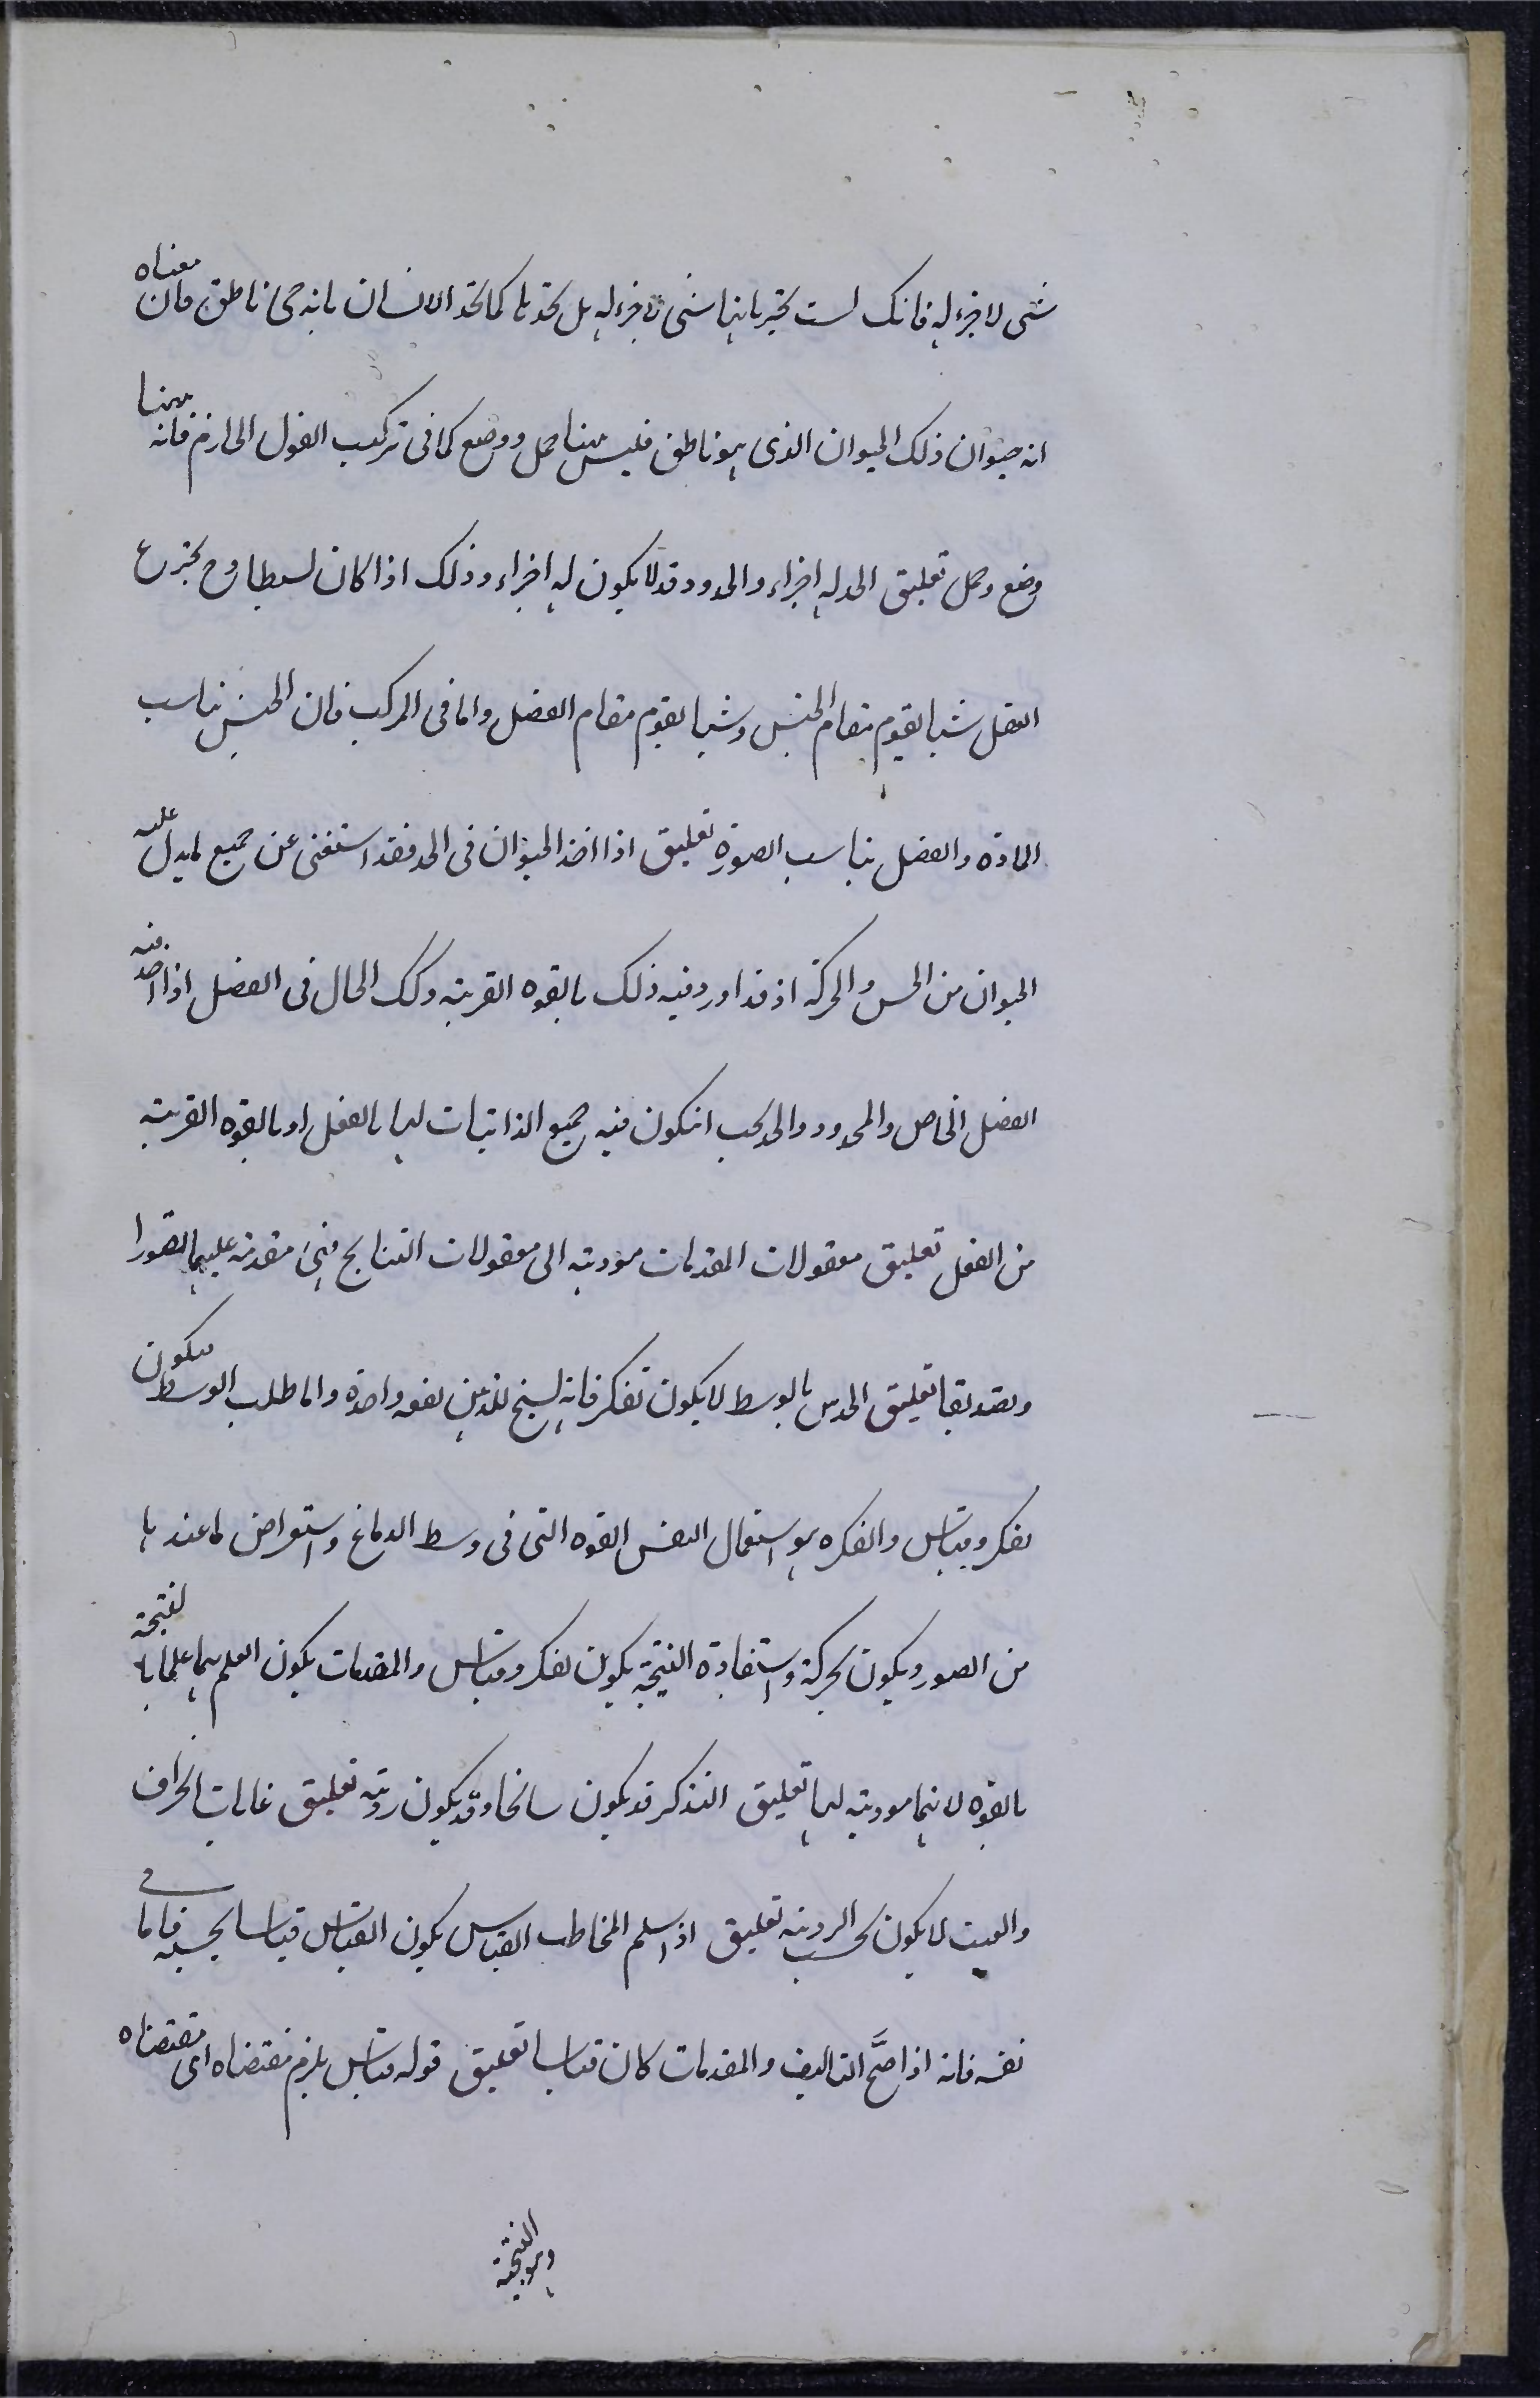 شی لا جزء له فانک لست تخبر بانها شی لا جزء له بل تحدها کما تحد الانسان بانه حی ناطق فان معناه
انه حیوان ذلک الحیوان الذی هو ناطق فلیس هنا حمل و وضع کما فی ترکیب القول الجازم فانه هنا
وضع و حمل تعلیق الحد له اجزاء و المحدود قد لا یکون له اجزاء و ذلک اذا کان بسیطا و ح یخترع
العقل شیا یقوم مقام الجنس و شیا یقوم مقام الفصل و اما فی المرکب فان الجنس یناسب
المادة و الفصل یناسب الصورة تعلیق اذا اخذ الحیوان فی الحد فقد استغنی عن جمیع ما یدل علیه
الحیوان من الحس و الحرکة اذ قد اورد فیه ذلک بالقوه القریبة و کک الحال فی الفصل اذا اخذ فیه
الفصل الخاص و المحدود و الحد یجب ان یکون فیه جمیع الذاتیات لها بالفعل او بالقوه القریبة
من الفعل تعلیق معقولات المقدمات مودیة الی معقولات النتایج فهی متقدمة علیها تصورا
و تصدیقا تعلیق الحدس بالوسط لا یکون بفکر فانه یسنح للذهن دفعه واحدة و اما طلب الوسط فیکون
بفکر و قیاس و الفکره هو استعمال النفس القوه التی فی وسط الدماغ و استعراض ما عندها
من الصور و یکون بحرکة و استفادة النتیجة یکون بفکر و قیاس و المقدمات یکون العلم بها علما بالنتیجة
بالقوه لانها مودیة الیها تعلیق التذکر قد یکون سانحا و قد یکون رویة تعلیق غایات الجزاف
و العبث لا یکون بحسب الرویة تعلیق اذا سلم المخاطب القیاس یکون القیاس قیاسا بحسبه فاما فی
نفسه فانه اذا صحَّ التالیف و المقدمات کان قیاسا تعلیق قوله قیاس یلزم مقتضاه ای مقتضاه
و هو النتیجة